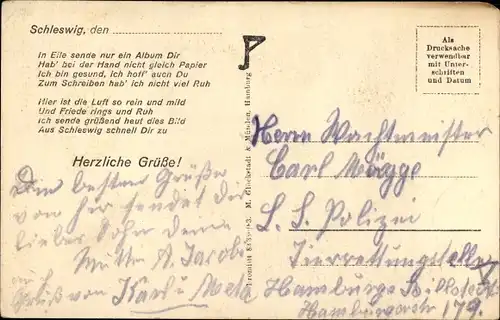 Schleswig, den
In Eile sende nur ein Album Dir
Hab' bei der Hand nicht gleich Papier
Ich bin gesund, ich hoff' auch Du
Zum Schreiben hab' ich nicht viel Ruh
Hier ist die Luft so rein und mild
Und Friede rings und Ruh
Ich sende grüßend heut dies Bild
Aus Schleswig schnell Dir zu
Herzliche Grüße!
Die besten Grüße
von hier sendet dir
lieber Sohn deine
Mutter A. Jacobs
Gruß von Karl u Meta
M. Glückstadt & Münden, Hamburg
Als
Drucksache
verwendbar
mit Unter-
schriften
und Datum
Herrn Wachtmeister
Carl Mögge
Polizei
Tierrettungstelle
Hamburg
Hamburgerstr 179.